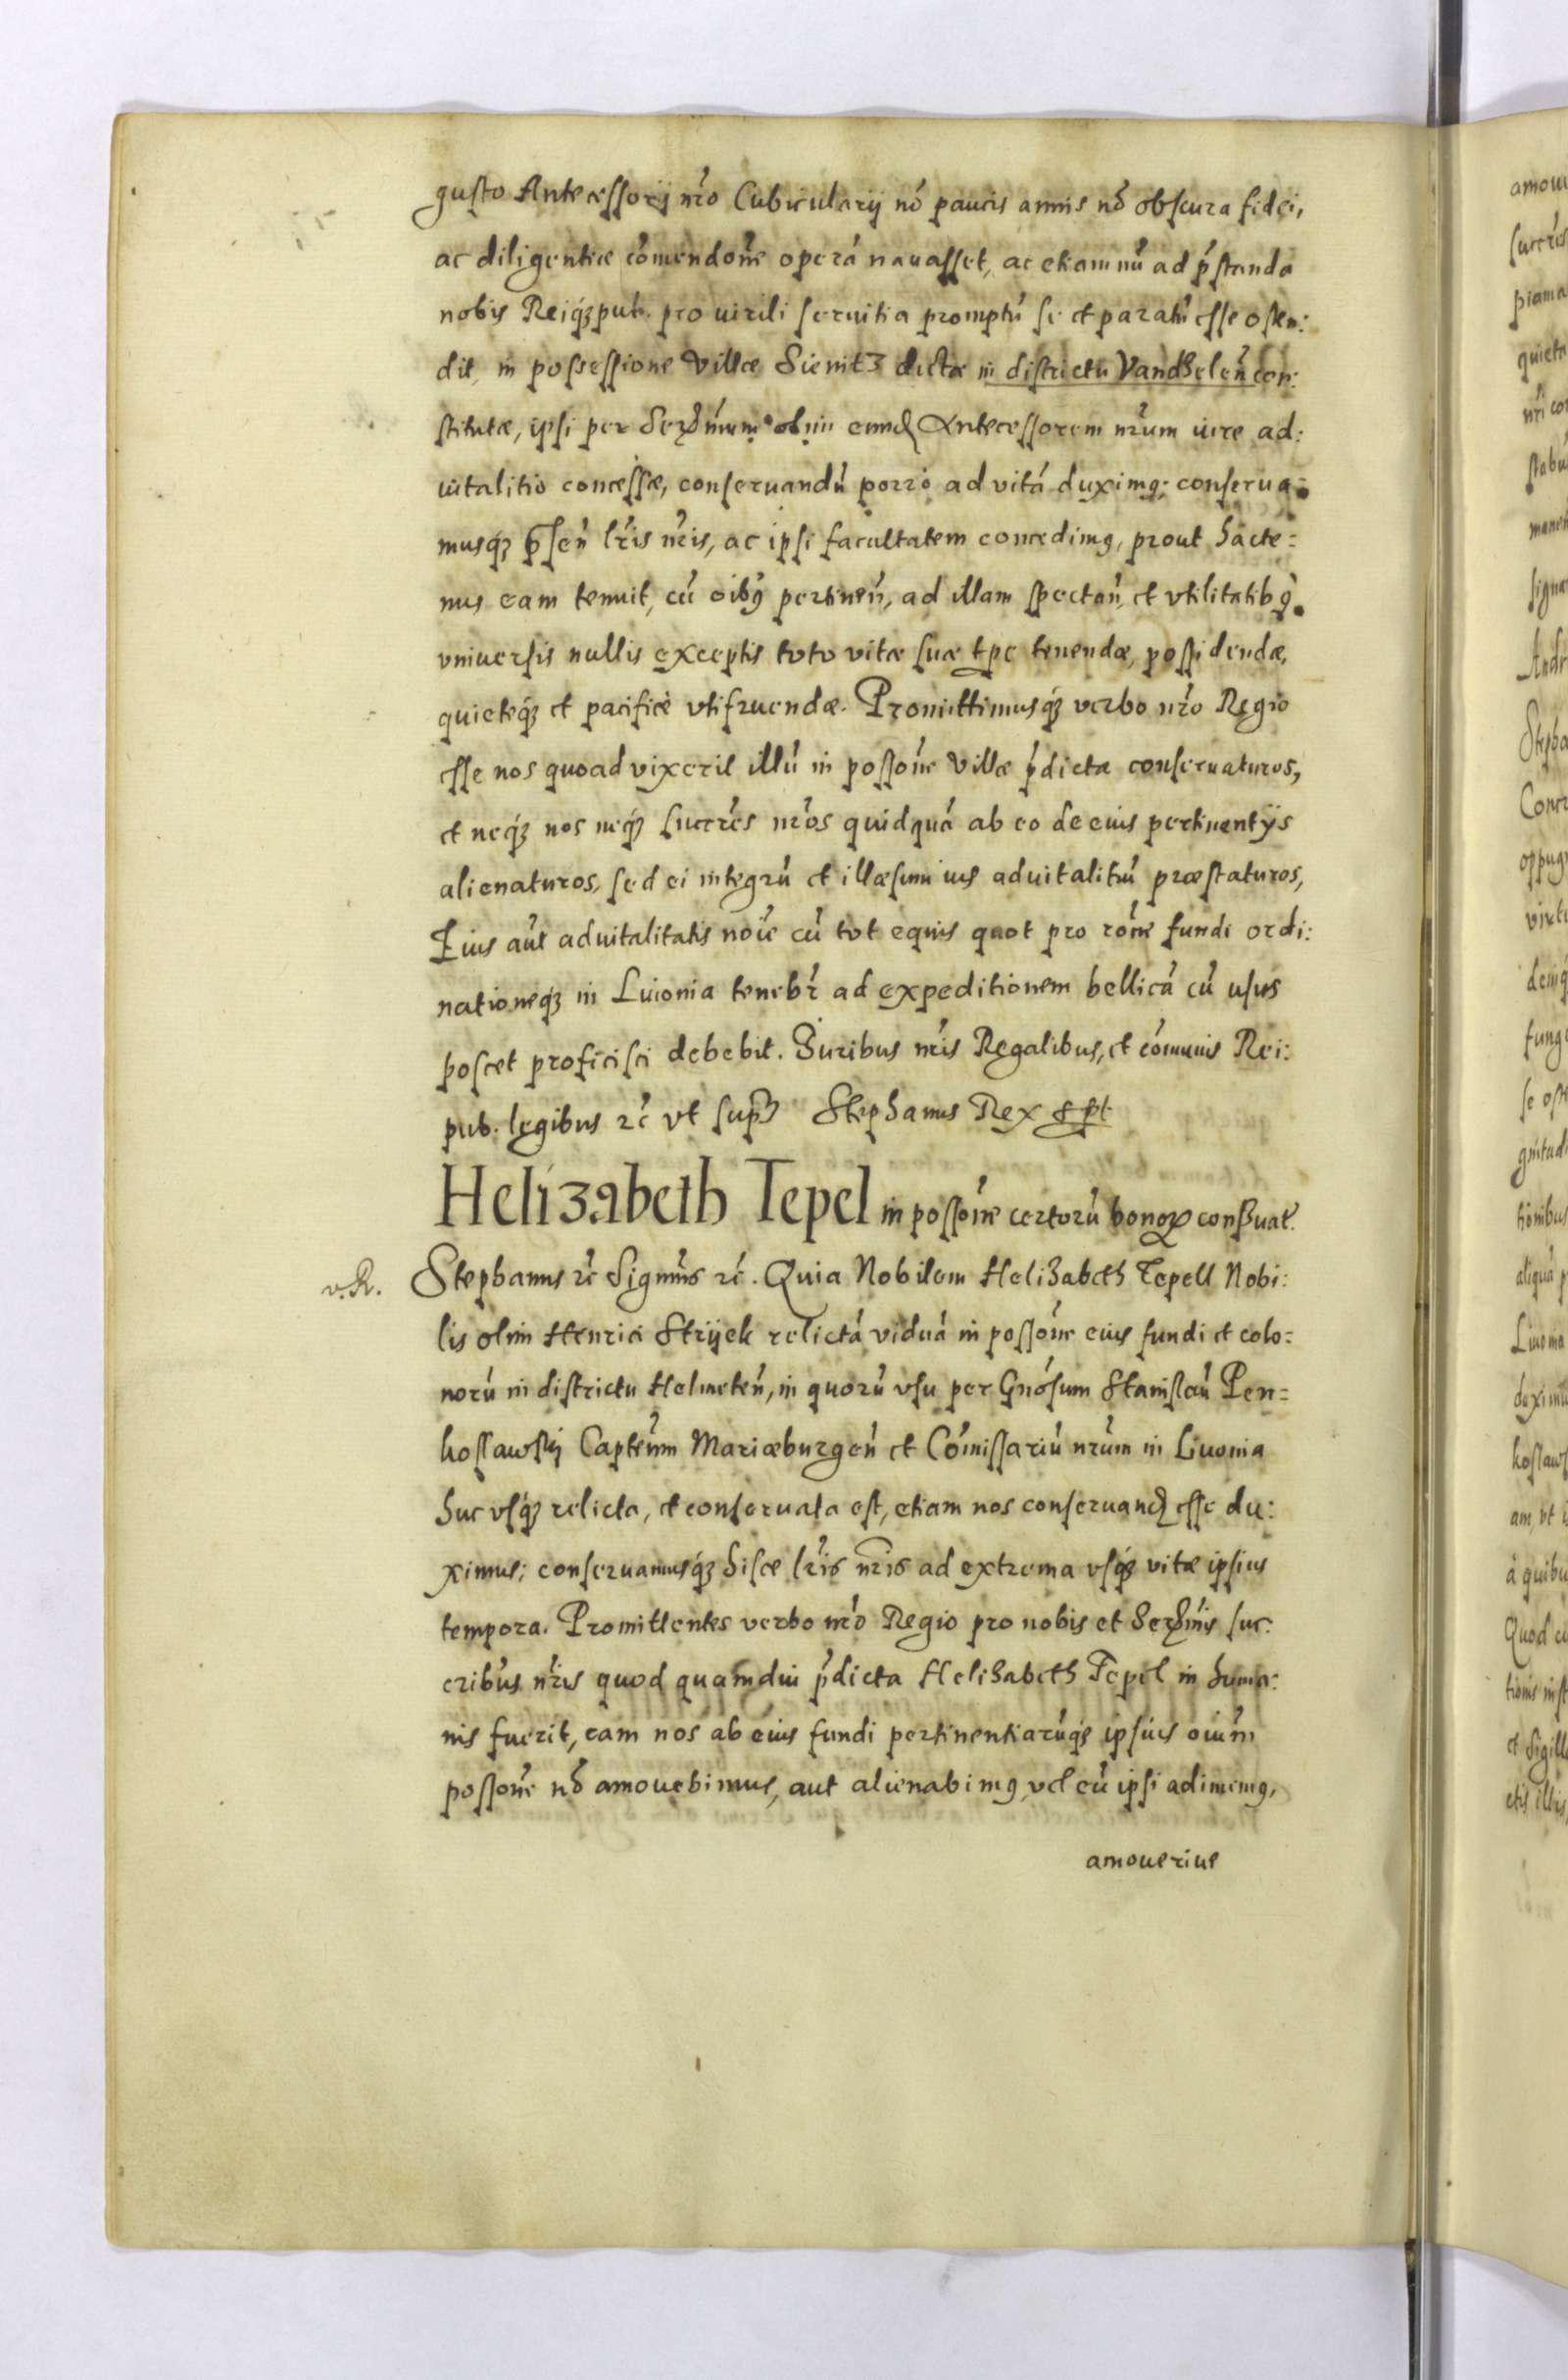 gusto Antecessorij nr̃o Cubicularij nõ paucis annis nõ obscura fidei,
ac diligentiæ com̃endoñe operã nauasset, ac etiam nũ ad p̃standa
nobis Reiq́ꝫ pub. pro uirili seruitia promptũ se et paratũ esse osten:
dit, in possessione Villæ Sienitz dictæ in districtu Vandzeleñ con:
stitutæ, ipsi per Serꝫm̃um olim eund Antecessorem nr̃um iure ad:
uitalitio concessæ, conseruandũ porrò ad vitã duximꝰ; conserua:
musq́ꝫ p̃señ lr̃is nr̃is, ac ipsi facultatem concedimꝰ, prout hacte:
nus eam tenuit, cũ oĩbꝰ pertineñ, ad illam spectañ, et vtilitatibꝰ
vniuersis nullis exceptis toto vitæ suæ tp̃e tenendæ, possidendæ,
quieteq́ꝫ et pacificè vtifruendæ. Promittimusq́ꝫ verbo nr̃o Regio
esse nos quoad vixerit illũ in possoñe Villæ p̃dicta conseruaturos,
et neq́ꝫ nos neq́ꝫ succr̃es nr̃os quidquã ab eo de eius pertinentÿs
alienaturos, sed ei integrũ et illæsum ius aduitalitiũ præstaturos,
Eius aũt aduitalitatis noĩe cũ tot equis quot pro roñe fundi ordi:
nationeq́ꝫ in Liuonia tenebr̃ ad expeditionem bellicã cũ usus
poscet proficisci debebit. Iuribus nr̃is Regalibus, et com̃unis Rei:
pub. legibus rc̃ vt sup̃ Stephanus Rex spt.
Helizabeth Tepel in possoñe certorũ bonoꝝ conßuat.
v. R. Stephanus rc̃ Signm̃s rc̃. Quia Nobilem Helizabeth Tepell Nobi:
lis olim Henrici Strijek relictã viduã in possoñe eius fundi et colo:
norũ in districtu Helmeteñ, in quorũ vsu per Gnõsum Stanislaũ Pen:
koslawskij Capteñm Mariæburgeñ et Com̃issariũ nr̃um in Liuonia
huc vsq́ꝫ relicta, et conseruata est, etiam nos conseruand esse du:
ximus; conseruamusq́ꝫ hisce lr̃is nr̃is ad extrema vsq́ꝫ vitæ ipsius
tempora. Promittentes verbo nr̃o Regio pro nobis et Serꝫm̃is suc:
cribũs nr̃is quod quamdiu p̃dicta Helizabeth Tepel in huma:
nis fuerit, eam nos ab eius fundi pertinentiarũq́ꝫ ipsius oiũm
possoñe nõ amouebimus, aut alienabimꝰ, vel eũ ipsi adimemꝰ,
amouerius